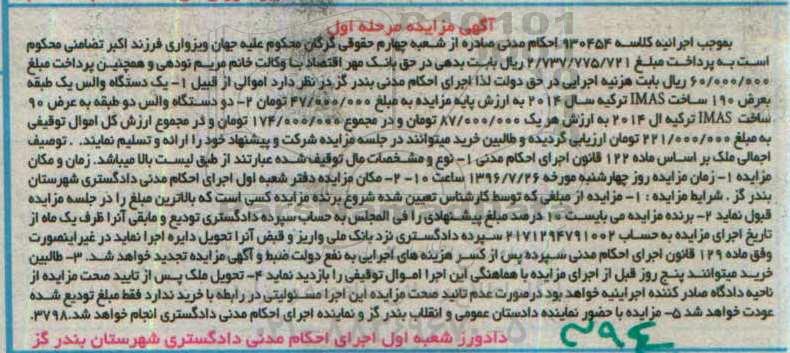 آگهی مزایده مرحله اول
بموجب اجرائیه کلاسه ۹۳۰۴۵۴ احکام مدنی صادره از شعبه چهارم حقوقی گرگان محکوم علیه جهان ویزواری فرزند اکبر تضامنی محکوم
است به پرداخت مبلغ ۲/۷۳۷/۷۷۵/۷۲۱ ریال بابت بدهی در حق بانک مهر اقتصاد با وکالت خانم مریم نودهی و همچنین پرداخت مبلغ
۶۰/۰۰۰/۰۰۰ ریال بابت هزینه اجرایی در حق دولت لذا اجرای احکام مدنی بندر گز در نظر دارد اموالی از قبیل ۱- یک دستگاه والس یک طبقه
بعرض ۱۹۰ ساخت IMAS ترکیه سال ۲۰۱۴ به ارزش پایه مزایده به مبلغ ۴۷/۰۰۰/۰۰۰ تومان ۲- دو دستگاه والس دو طبقه به عرض ۹۰
ساخت IMAS ترکیه ال ۲۰۱۴ به ارزش هر یک ۸۷/۰۰۰/۰۰۰ تومان و در مجموع ۱۷۴/۰۰۰/۰۰۰ تومان و در مجموع ارزش کل اموال توقیفی
به مبلغ ۲۲۱/۰۰۰/۰۰۰ تومان ارزیابی گردیده و طالبین خرید میتوانند در جلسه مزایده شرکت و پیشنهاد خود را ارائه و تسلیم نمایند. . توصیف
اجمالی ملک بر اساس ماده ۱۲۲ قانون اجرای احکام مدنی ۱- نوع و مشخصات مال توقیف شده عبارتند از طبق لیست بالا میباشد. زمان و مکان
مزایده ۱- زمان مزایده روز چهارشنبه مورخه ۱۳۹۶/۷/۲۶ ساعت ۱۰ ۲- مکان مزایده دفتر شعبه اول اجرای احکام مدنی دادگستری شهرستان
بندر گز . شرایط مزایده : ۱- مزایده از مبلغی که توسط کارشناس تعیین شده شروع برنده مزایده کسی است که بالاترین مبلغ را در جلسه مزایده
قبول نماید ۲- برنده مزایده می بایست ۱۰ درصد مبلغ پیشنهادی را فی المجلس به حساب سپرده دادگستری تودیع و مابقی آنرا ظرف یک ماه از
تاریخ اجرای مزایده به حساب ۲۱۷۱۲۹۴۷۹۱۰۰۲ سپرده دادگستری نزد بانک ملی واریز و قبض آنرا تحویل دایره اجرا نماید در غیراینصورت
وفق ماده ۱۲۹ قانون اجرای احکام مدنی سپرده پس از کسر هزینه های اجرایی به نفع دولت ضبط و آگهی مزایده تجدید خواهد شد. ۳- طالبین
خرید میتوانند پنج روز قبل از اجرای مزایده با هماهنگی این اجرا اموال توقیفی را بازدید نماید ۴- تحویل ملک پس از تایید صحت مزایده از
ناحیه دادگاه صادر کننده اجرائیه خواهد بود در صورت عدم تائید صحت مزایده این اجرا مسئولیتی در رابطه با خرید ندارد فقط مبلغ تودیع شده
عودت خواهد شد ۵- مزایده با حضور نماینده دادستان عمومی و انقلاب بندر گز و نماینده اجرای احکام مدنی دادگستری انجام خواهد شد.۳۷۹۸
دادورز شعبه اول اجرای احکام مدنی دادگستری شهرستان بندر گز